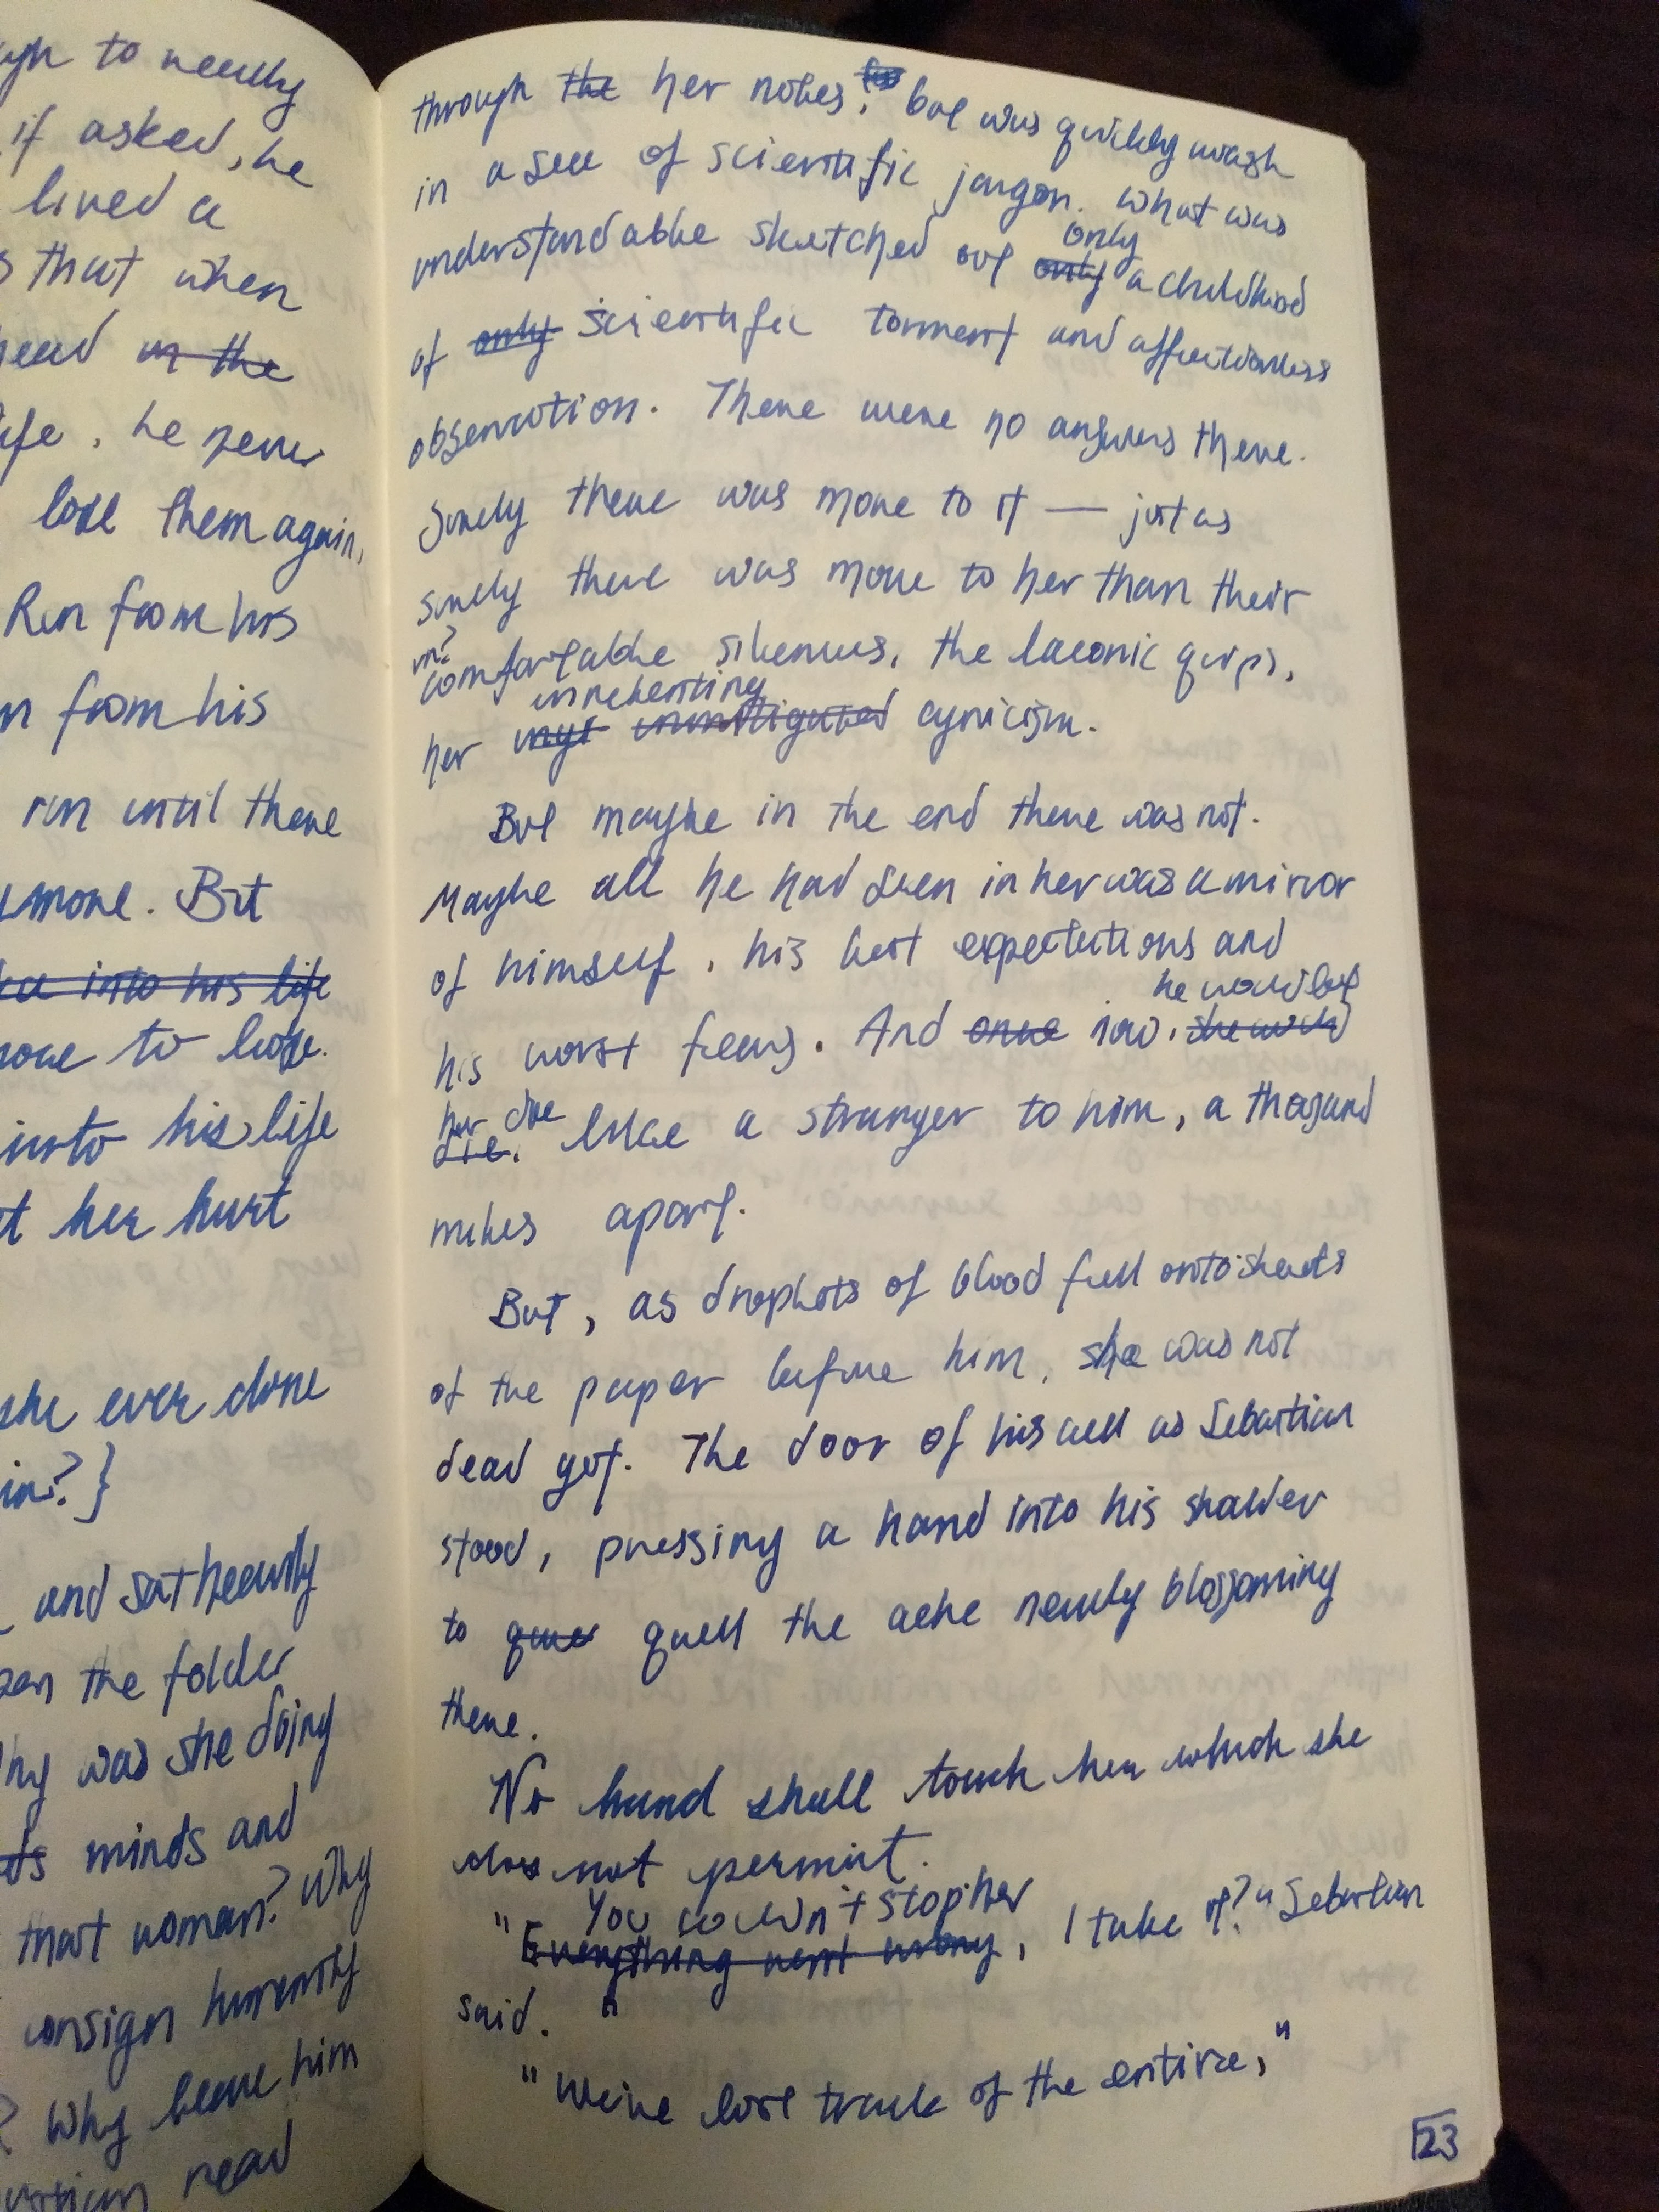 to neeedly
if asked, he
lived a
that when
in the
he never
lose them again,
Run from his
from his
run until there
more. But
into his life
to lose.
into his life
her hurt
she ever done
in? }
and sat heavily
the folder
was she doing
minds and
that woman? Why
consign humanity
? Why leave him
read
through the her notes, but was quickly awash
in a sea of scientific jargon. What was
only
understandable sketched out only a childhood
of only scientific torment and affectionless
observation. There were no answers there.
Surely there was more to it — just as
surely there was more to her than their
in?
comfortable silences, the laconic quips,
unrelenting
her unmitigated cynicism.
But maybe in the end there was not.
Maybe all he had seen in her was a mirror
of himself, his best expectations and
he would let
his worst fears. And once now, she would
her die
die. like a stranger to him, a thousand
miles apart.
But, as droplets of blood fell onto sheets
of the paper before him, she was not
dead yet. The door of his cell as Sebastian
stood, pressing a hand into his shoulder
to quell the ache newly blossoming
there.
No hand shall touch her which she
does not permit.
You couldn't stop her
"Everything went wrong, I take it?" Sebastian
said. "
"We've lost track of the entire,"
23